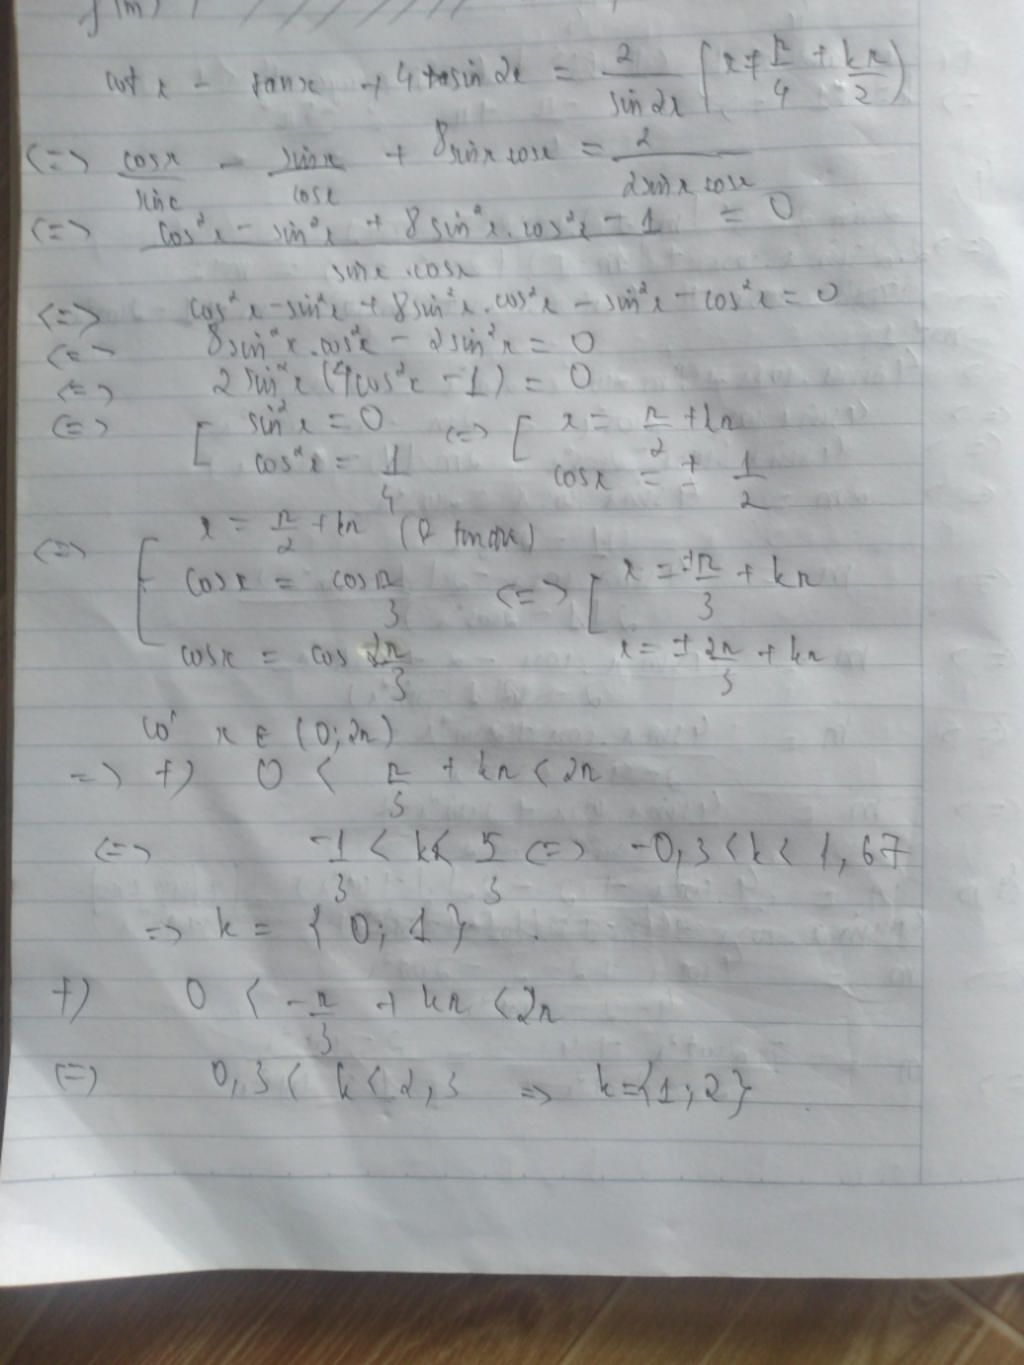 f(m)
cot x - tanx + 4 sin 2x = 2/sin 2x (x ≠ π/4 + kπ/2)
<=> cosx/sinx - sinx/cosx + 8 sinx cosx = 2/2sinx cosx
<=> (cos²x - sin²x + 8 sin²x.cos²x - 1)/(sinx.cosx) = 0
<=> cos²x - sin²x + 8 sin²x.cos²x - sin²x - cos²x = 0
<=> 8 sin²x.cos²x - 2sin²x = 0
<=> 2 sin²x (4cos²x - 1) = 0
<=> [ sin²x = 0 <=> [ x = π/2 + kπ
cos²x = 1/4 cosx = ± 1/2
<=> [ x = π/2 + kπ
cosx = cos π/3 <=> [ x = ±π/3 + kπ
cosx = cos 2π/3 x = ± 2π/3 + kπ
có x ∈ (0; 2π)
=> +) 0 < π/3 + kπ < 2π
<=> -1/3 < k < 5/3 <=> -0,3 < k < 1,67
=> k = {0; 1}
+) 0 < -π/3 + kπ < 2π
<=> 0,3 < k < 2,3 => k={1; 2}